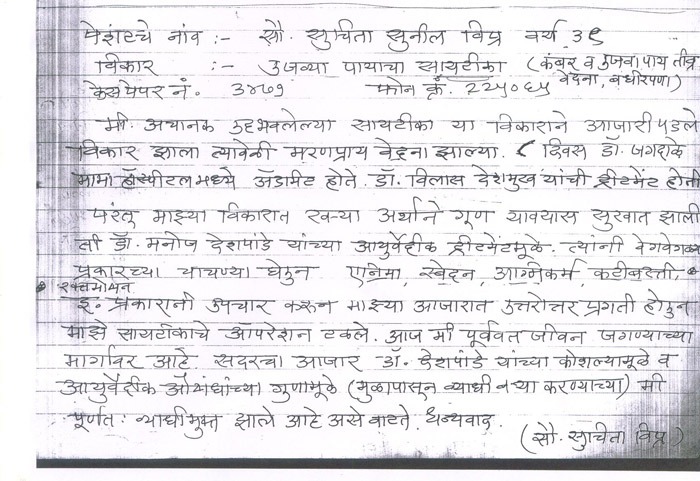 पेशंटचे नांव :- सौ. सुचिता सुनील विप्र वय ३९
विकार :- उजव्या पायाचा सायटीका (कंबर व उजवा पाय तीव्र
वेदना, बधीरपणा)
केसपेपर नं. ३४७१ फोन क्रं. २२५०६५
मी अचानक उद्भवलेल्या सायटीका या विकाराने आजारी पडले
विकार झाला त्यावेळी मरणप्राय वेदना झाल्या. ८ दिवस डॉ. जगदाळे
मामा हॉस्पीटलमध्ये अ‍ॅडमीट होते. डॉ. विलास देशमुख यांची ट्रीटमेंट होती
परंतू माझ्या विकारात खऱ्या अर्थाने गूण यावयास सुरवात झाली
ती डॉ. मनोज देशपांडे यांच्या आयुर्वेदीक ट्रीटमेंटमूळे. त्यांनी वेगवेगळ्या
प्रकारच्या चाचण्या घेऊन एनिमा, स्वेदन, अग्निकर्म, कटीबस्ती,
रक्तमोक्षण
इ. प्रकारानी उपचार करून माझ्या आजारात उत्तरोत्तर प्रगती होऊन
माझे सायटीकाचे ऑपरेशन टळले. आज मी पूर्ववत जीवन जगण्याच्या
मार्गावर आहे सदरचा आजार डॉ. देशपांडे यांच्या कौशल्यामूळे व
आयुर्वेदीक औषधांच्या गूणामूळे (मुळापासून व्याधी बऱ्या करण्याच्या) मी
पूर्णत: व्याधीमुक्त झाले आहे असे वाटते. धन्यवाद.
(सौ. सुचिता विप्र)